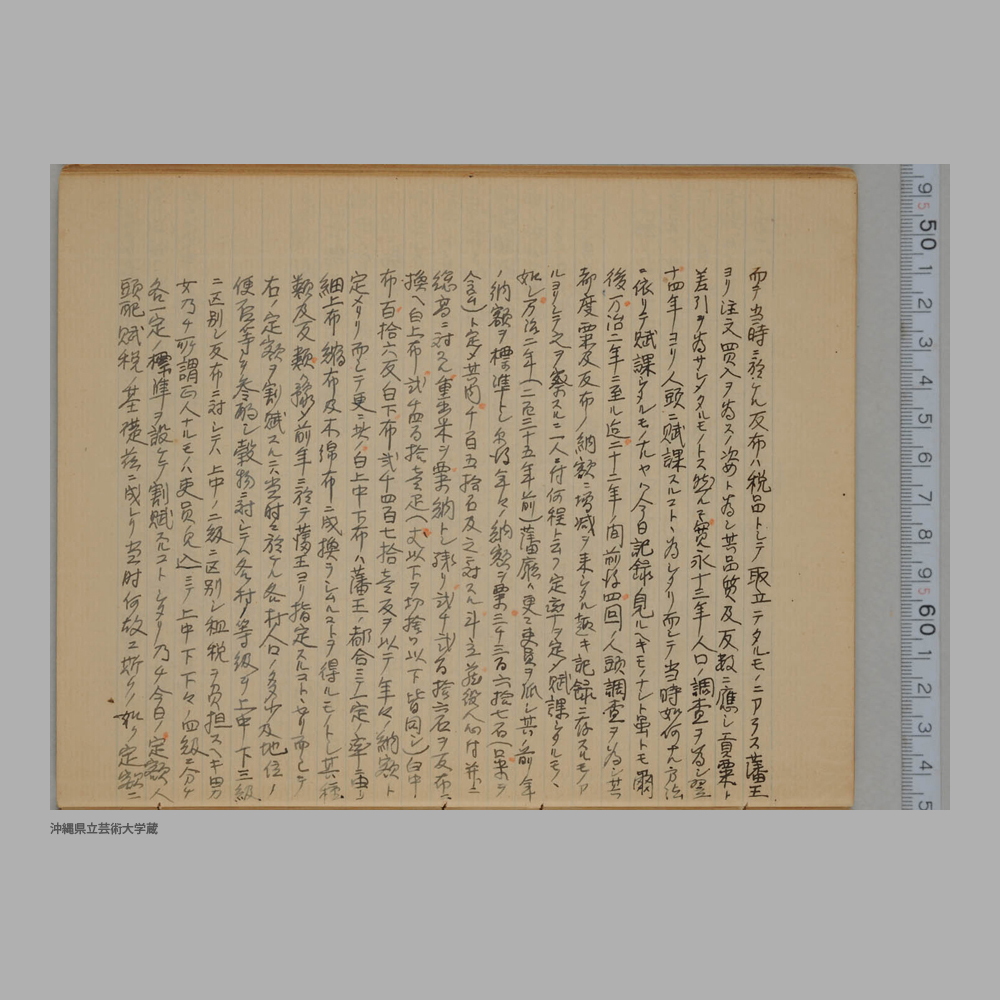 而シテ当時ニ於ケル反布ハ税品トシテ取立テタルモノニアラス藩王
ヨリ注文買入ヲ為スノ姿ト為シ其品質及反数ニ應シ貢粟ト
差引ヲ為サシメタルモノトス然ルニ寛永十三年人口ノ調査ヲ為シ翌
十四年ヨリ人頭ニ賦課スルコトヽ為レタリ而シテ当時如何ナル方法
ニ依リテ賦課シタルモノナルヤハ今日記録ノ見ルヘキモノナシト虽トモ爾
後万治二年ニ至ル迄二十二年ノ間前後四回ノ人頭調査ヲ為シ其
都度粟及反布ノ納額ニ増減ヲ来シタル趣キ記録ニ存スルモノア
ルヨリシテ之ヲ察スルニ一人ニ付何程ト云フ定率ヲ定メ賦課シタルモノヽ
如シ万治二年(二百三十五年前)藩廳ハ更ニ吏員ヲ派シ其ノ前年
ノ納額ヲ標準トシ後年々ノ納額ヲ粟三千三百六拾七石(
ト定メ其内千百五拾石及之ニ対スル
総高ニ対スル重出米ヲ粟納トシ残リ弐千弐百拾六石ヲ反布ニ
換ヘ白上布弐千四百拾壱疋(丈以下ヲ切捨ツ以下皆同シ)白中
布百拾六反白下布弐千四百七拾壱反ヲ以テ年々ノ納額ト
定メタリ而シテ更ニ此ノ白上中下布ハ藩王ノ都合ニテ一定ノ率ニ由リ
細上布縮布及木綿布ニ成換ラシムルコトヲ得ルモノトシ其種
類及反数ハ豫メ前年ニ於テ藩王ヨリ指定スルコトヽセリ而シテ
右ノ定額ヲ割賦スルニハ当時ニ於ケル各村人口ノ多少及地位ノ
便否等ヲ参酌シ穀物ニ対シテハ各村ノ等級ヲ上中下三級
ニ区別シ反布ニ対シテハ上中ノ二級ニ区別シ租税ヲ負担スヘキ男
女乃チ所謂正人ナルモノハ吏員見込ミニテ上中下下々ノ四級ニ分チ
各一定ノ標準ヲ設ケテ割賦スルコトヽシタリ乃チ今日ノ定額人
頭配賦税ノ基礎茲ニ成レリ当時何故ニ斯クノ如ク定額ニ
沖縄県立芸術大学蔵